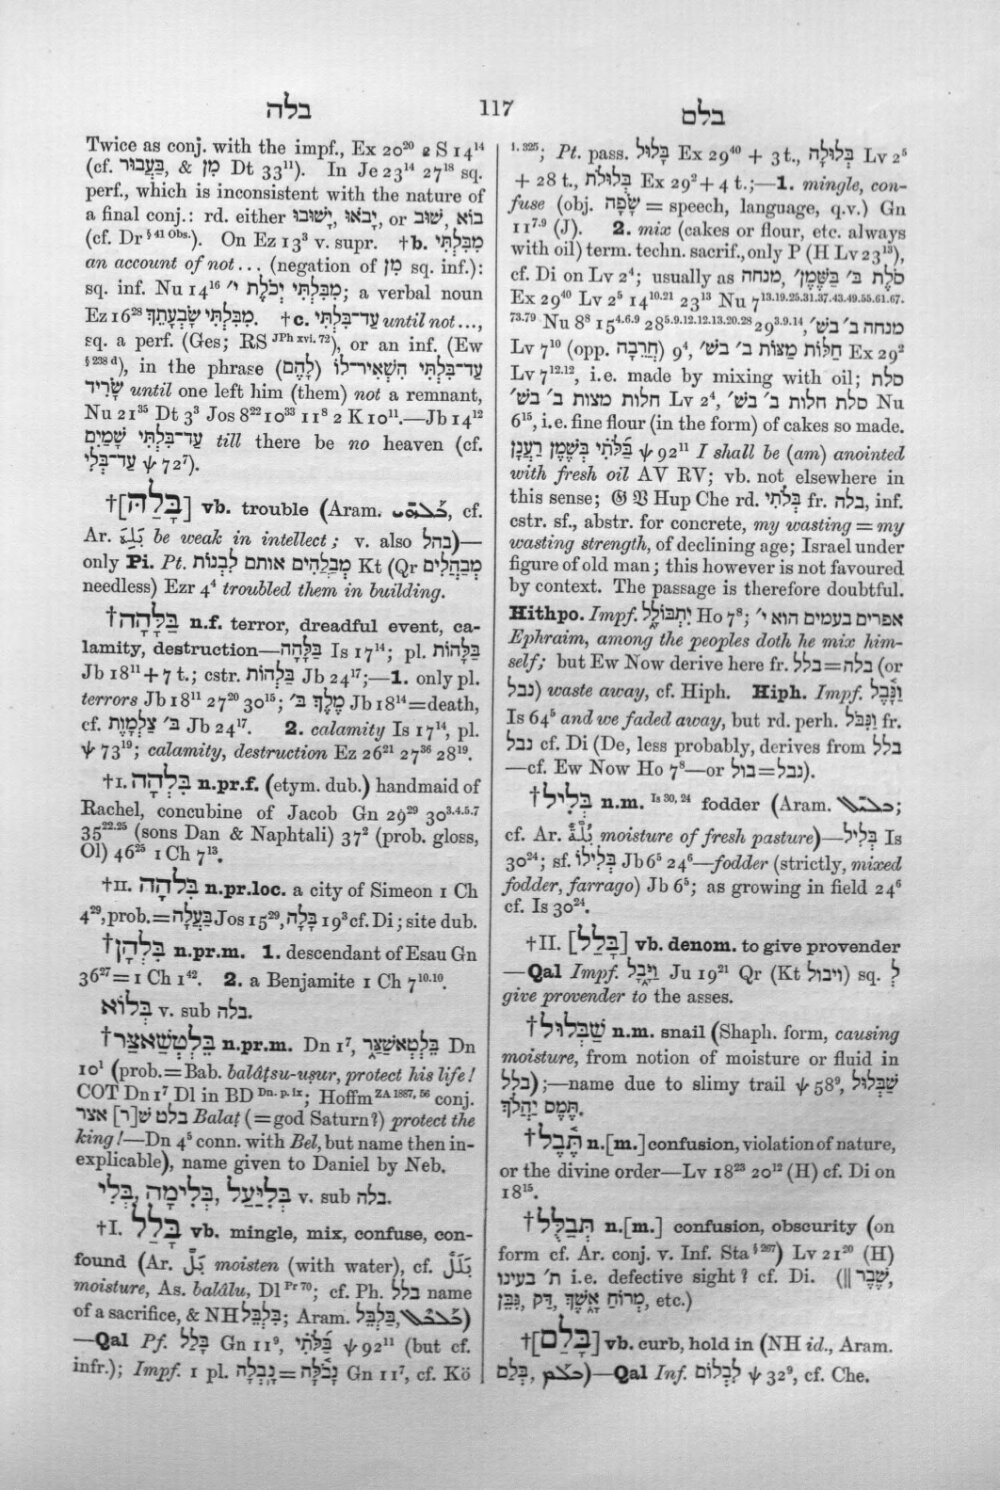 בלה
117
בלם
Twice as conj. with the impf., Ex 20²⁰ 2 S 14¹⁴
(cf. בַּעֲבוּר, & מִן Dt 33¹¹). In Je 23¹⁴ 27¹⁸ sq.
perf., which is inconsistent with the nature of
a final conj.: rd. either יָבֹאוּ, יָשׁוּבוּ, or בוֹא, שׁוּב
(cf. Dr § 41 Obs.). On Ez 13³ v. supr. †b. מִבִּלְתִּי
an account of not... (negation of מִן sq. inf.):
sq. inf. Nu 14¹⁶ מִבִּלְתִּי יְכֹלֶת י׳; a verbal noun
Ez 16²⁸ מִבִּלְתִּי שָׂבְעָתֵךְ. †c. עַד־בִּלְתִּי until not...,
sq. a perf. (Ges; RS JPh xvi. 72), or an inf. (Ew
§ 238 d), in the phrase עַד־בִּלְתִּי הִשְׁאִיר־לוֹ (לָהֶם)
שָׂרִיד until one left him (them) not a remnant,
Nu 21³⁵ Dt 3³ Jos 8²² 10³³ 11⁸ 2 K 10¹¹.—Jb 14¹²
עַד־בִּלְתִּי שָׁמַיִם till there be no heaven (cf.
עַד־בְּלִי ψ 72⁷).
†[בָּלַהּ] vb. trouble (Aram. cf.
Ar. be weak in intellect; v. also בהל)—
only Pi. Pt. מְבַלֲהִים אותם לִבְנוֹת Kt (Qr מְבַהֲלִים
needless) Ezr 4⁴ troubled them in building.
†בַּלָּהָה n.f. terror, dreadful event, ca-
lamity, destruction—בַּלָּהָה Is 17¹⁴; pl. בַּלָּהוֹת
Jb 18¹¹ + 7 t.; cstr. בַּלְהוֹת Jb 24¹⁷;—1. only pl.
terrors Jb 18¹¹ 27²⁰ 30¹⁵; מֶלֶךְ ב׳ Jb 18¹⁴ = death,
cf. ב׳ צַלְמָוֶת Jb 24¹⁷. 2. calamity Is 17¹⁴, pl.
ψ 73¹⁹; calamity, destruction Ez 26²¹ 27³⁶ 28¹⁹.
†I. בִּלְהָה n.pr.f. (etym. dub.) handmaid of
Rachel, concubine of Jacob Gn 29²⁹ 30³·⁴·⁵·⁷
35²²·²⁵ (sons Dan & Naphtali) 37² (prob. gloss,
Ol) 46²⁵ 1 Ch 7¹³.
†II. בִּלְהָה n.pr.loc. a city of Simeon 1 Ch
4²⁹, prob. = בַּעֲלָה Jos 15²⁹, בָּלָה 19³ cf. Di; site dub.
†בִּלְהָן n.pr.m. 1. descendant of Esau Gn
36²⁷ = 1 Ch 1⁴². 2. a Benjamite 1 Ch 7¹⁰·¹⁰.
בְּלוֹא v. sub בלה.
†בֵּלְטְשַׁאצַּר n.pr.m. Dn 1⁷, בֵּלְטְאשַׁצַּר Dn
10¹ (prob. = Bab. balâṭsu-uṣur, protect his life!
COT Dn 1⁷ Dl in BD Dn. p. ix; Hoffm ZA 1887, 56 conj.
בלט ש[ר] אצר Balaṭ (= god Saturn?) protect the
king!—Dn 4⁵ conn. with Bel, but name then in-
explicable), name given to Daniel by Neb.
בְּלִי, בְּלִימָה, בְּלִיַּעַל v. sub בלה.
†I. בָּלַל vb. mingle, mix, confuse, con-
found (Ar. بَلَّ moisten (with water), cf. بَلَلٌ
moisture, As. balâlu, Dl Pr 70; cf. Ph. בלל name
of a sacrifice, & NH בִּלְבֵּל; Aram. בַּלְבֵּל,
—Qal Pf. בָּלַל Gn 11⁹, בַּלֹּתִי ψ 92¹¹ (but cf.
infr.); Impf. 1 pl. נָבְלָה = נָבֹלָּה Gn 11⁷, cf. Kö
I. 325; Pt. pass. בָּלוּל Ex 29⁴⁰ + 3 t., בְּלוּלָה Lv 2⁵
+ 28 t., בְּלוּלֹת Ex 29² + 4 t.;—1. mingle, con-
fuse (obj. שָׂפָה = speech, language, q.v.) Gn
11⁷·⁹ (J). 2. mix (cakes or flour, etc. always
with oil) term. techn. sacrif., only P (H Lv 23¹³),
cf. Di on Lv 2⁴; usually as מנחה, סֹלֶת ב׳ בַּשֶּׁמֶן׳
Ex 29⁴⁰ Lv 2⁵ 14¹⁰·²¹ 23¹³ Nu 7¹³·¹⁹·²⁵·³¹·³⁷·⁴³·⁴⁹·⁵⁵·⁶¹·⁶⁷·
⁷³·⁷⁹ Nu 8⁸ 15⁴·⁶·⁹ 28⁵·⁹·¹²·¹²·¹³·²⁰·²⁸ 29³·⁹·¹⁴, מנחה ב׳ בש׳
Lv 7¹⁰ (opp. חֲרֵבָה) 9⁴, חַלּוֹת מַצּוֹת ב׳ בש׳ Ex 29²
Lv 7¹²·¹², i.e. made by mixing with oil; סלת
חלות מצות ב׳ בש׳ Lv 2⁴, סלת חלות ב׳ בש׳ Nu
6¹⁵, i.e. fine flour (in the form) of cakes so made.
בַּלֹּתִי בְּשֶׁמֶן רַעֲנָן ψ 92¹¹ I shall be (am) anointed
with fresh oil AV RV; vb. not elsewhere in
this sense; 𝔊 𝔙 Hup Che rd. בְּלֹתִי fr. בלה, inf.
cstr. sf., abstr. for concrete, my wasting = my
wasting strength, of declining age; Israel under
figure of old man; this however is not favoured
by context. The passage is therefore doubtful.
Hithpo. Impf. יִתְבּוֹלָל Ho 7⁸; אפרים בעמים הוא י׳
Ephraim, among the peoples doth he mix him-
self; but Ew Now derive here fr. בלל = בלה (or
נבל) waste away, cf. Hiph. Hiph. Impf. וַנָּבֶל
Is 64⁵ and we faded away, but rd. perh. וַנִּבֹּל fr.
נבל cf. Di (De, less probably, derives from בלל
—cf. Ew Now Ho 7⁸—or בול = נבל).
†בְּלִיל n.m. Is 30, 24 fodder (Aram.
cf. Ar. moisture of fresh pasture)—בְּלִיל Is
30²⁴; sf. בְּלִילוֹ Jb 6⁵ 24⁶—fodder (strictly, mixed
fodder, farrago) Jb 6⁵; as growing in field 24⁶
cf. Is 30²⁴.
†II. [בָּלַל] vb. denom. to give provender
—Qal Impf. וַיָּבָל Ju 19²¹ Qr (Kt ויבול) sq. לְ
give provender to the asses.
†שַׁבְּלוּל n.m. snail (Shaph. form, causing
moisture, from notion of moisture or fluid in
בלל);—name due to slimy trail ψ 58⁹, שַׁבְּלוּל
תֶּמֶס יַהֲלֹךְ.
†תֶּבֶל n.[m.] confusion, violation of nature,
or the divine order—Lv 18²³ 20¹² (H) cf. Di on
18¹⁵.
†תְּבַלֻּל n.[m.] confusion, obscurity (on
form cf. Ar. conj. v. Inf. Sta § 267) Lv 21²⁰ (H)
ת׳ בעינו i.e. defective sight? cf. Di. (‖ שֶׁבֶר,
גִּבֵּן, דַּק, מְרוֹחַ אָשֶׁךְ, etc.)
†[בָּלַם] vb. curb, hold in (NH id., Aram.
בְּלַם, )—Qal Inf. לִבְלוֹם ψ 32⁹, cf. Che.